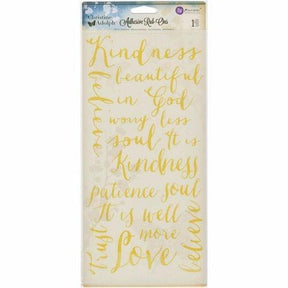 Christine Adolph
Adhesive Rub-Ons
1
Kindness
beautiful
in God
worry less
believe
soul It is
Kindness
patience soul
It is well
more
Trust
Love
believe